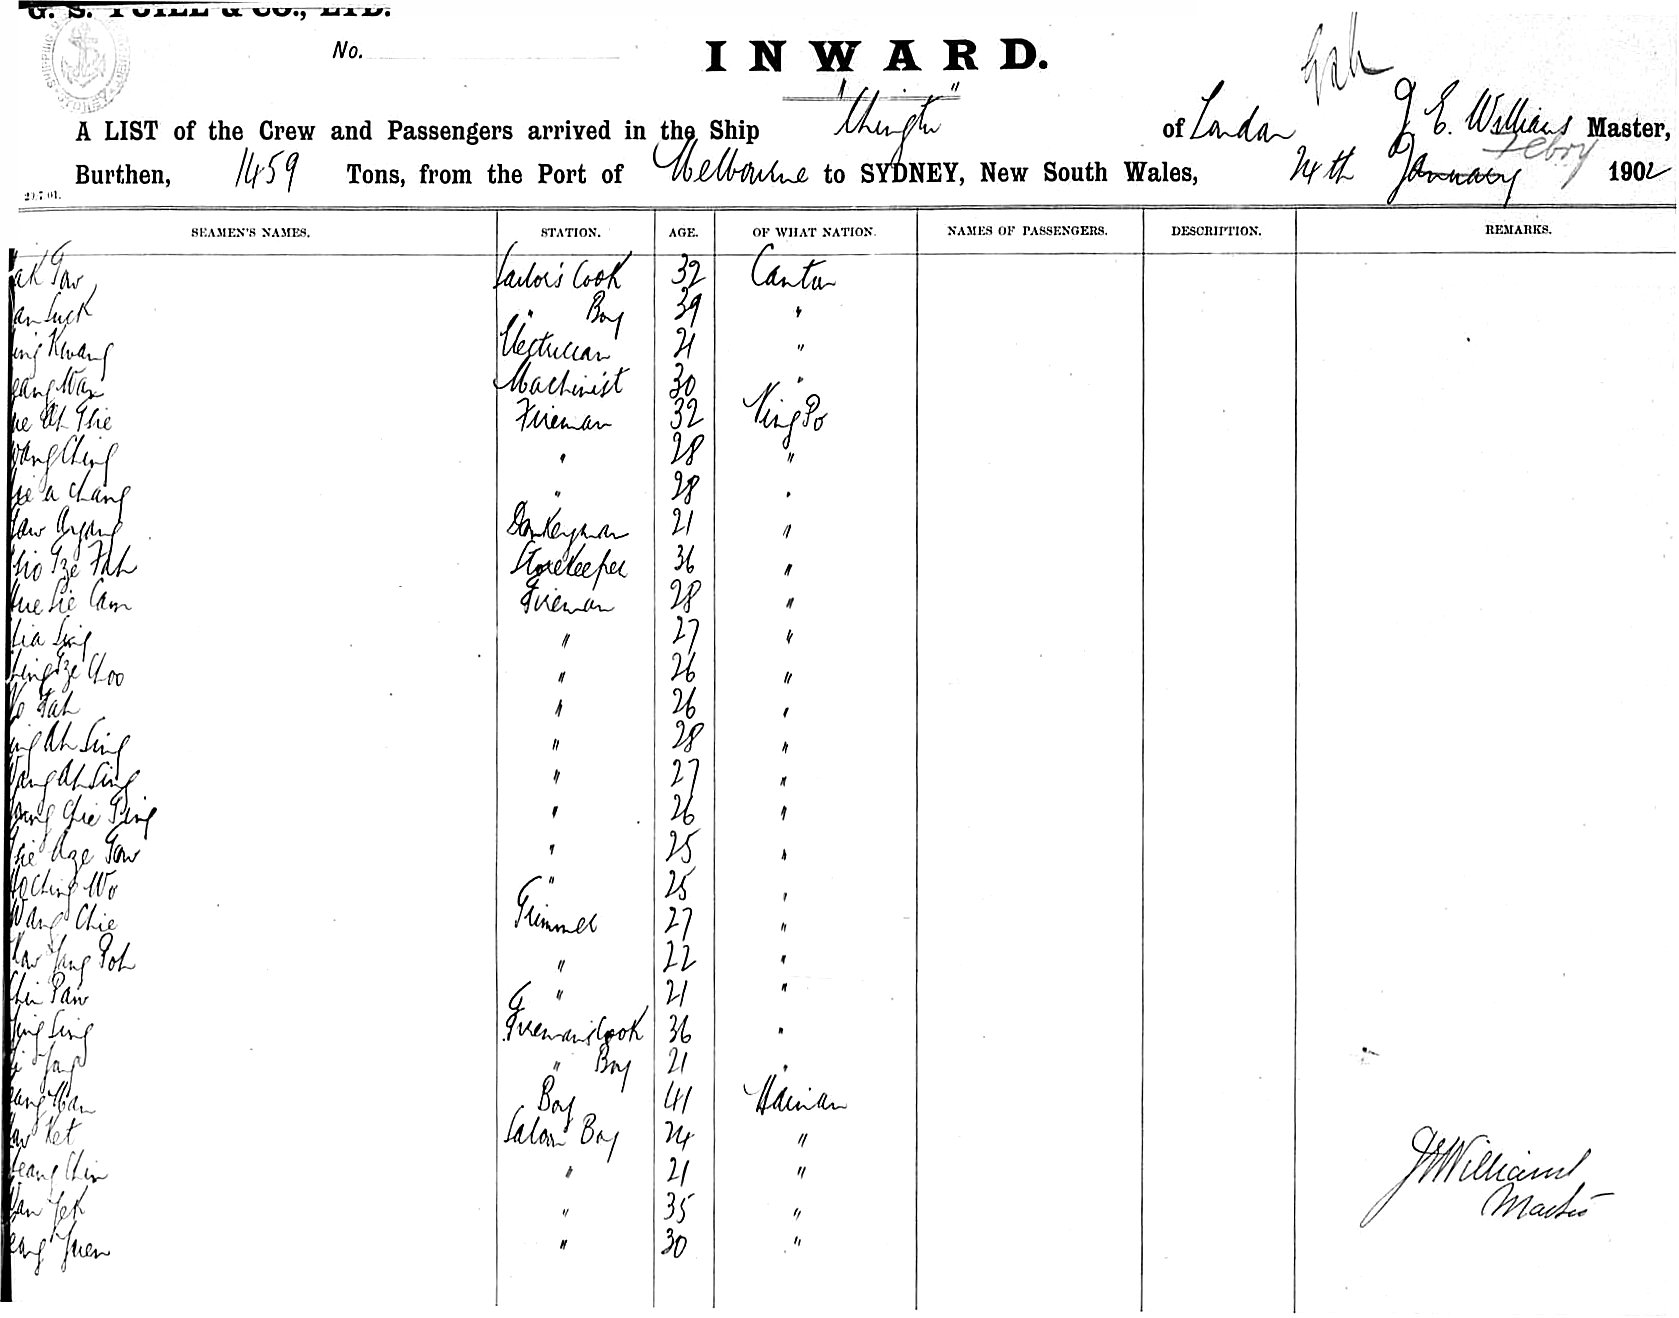 G. S. YUILL & CO., LTD.
No.
INWARD.
A LIST of the Crew and Passengers arrived in the Ship "Chingtu" of London J. E. Williams Master,
Burthen, 1459 Tons, from the Port of Melbourne to SYDNEY, New South Wales, 24th January Febry 1902
SEAMEN'S NAMES. STATION. AGE. OF WHAT NATION. NAMES OF PASSENGERS. DESCRIPTION. REMARKS.
Sailor's Cook 32 Canton
an Suck " Boy 39 "
ing Kwang Electrician 21 "
Machinist 30 "
Fireman 32 Ning Po
wang Ching " 28 "
a Chang " 28 "
Donkeyman 21 "
Tze Fah Storekeeper 36 "
Cam Fireman 28 "
Sing " 27 "
Tze Choo " 26 "
Fah " 26 "
ing Ah Sing " 28 "
Wang Ah Sing " 27 "
Ping " 26 "
" 25 "
Ching Wo " 25 "
Wang Chie Trimmer 27 "
Yang Poh " 22 "
Paw " 21 "
Sing Fireman's Cook 36 "
" Boy 21 "
Boy 41 Hainan
Ket Saloon Boy 24 "
eang Chin " 21 "
Yek " 35 "
eang Yuen " 30 "
J E Williams
Master